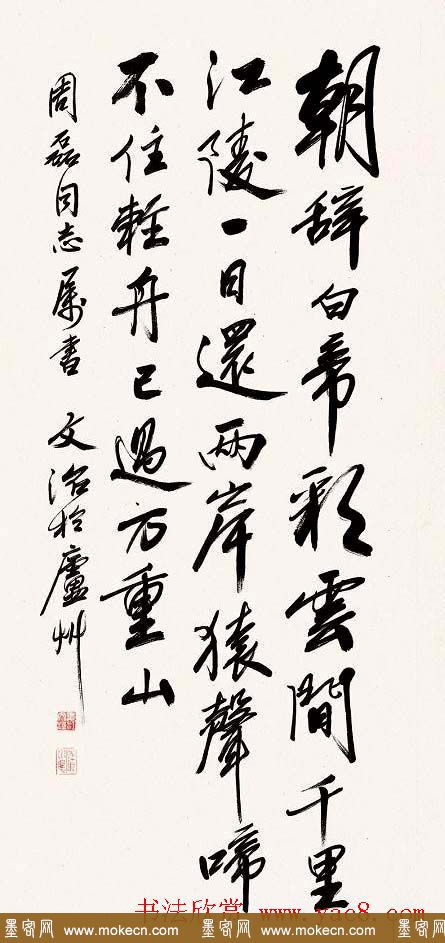 朝辞白帝彩雲間千里
江陵一日還兩岸猿聲啼
不住輕舟已過万重山
周磊同志属書 文治於廬州
书法欣赏 www.yac8.com
墨客网 www.mokecn.com 墨客网 www.mokecn.com 墨客网 www.mokecn.com